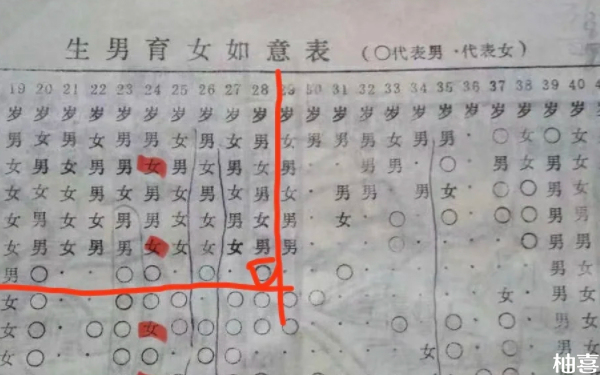 生男育女如意表 (○代表男·代表女)
19 20 21 22 23 24 25 26 27 28 29 30 31 32 33 34 35 36 37 38 39 40
岁 岁 岁 岁 岁 岁 岁 岁 岁 岁 岁 岁 岁 岁 岁 岁 岁 岁 岁 岁 岁 岁
男 女 男 女 男 男 女 男 女 男 女 男 男 男 女 男 男 · ○ 女 ○ 女
女 男 女 男 男 女 男 女 男 女 男 · · 男 男 · ○ · 男 女 男 女
女 女 女 男 女 男 女 男 女 男 女 · 男 男 · 男 女 · ○ ○ ○ 女
女 男 女 女 男 男 女 女 男 女 男 · 女 · ○ · ○ · ○ ○ 男 男
女 男 女 男 男 女 女 女 女 男 男 · · · · · · · · ○ 男 男
男 ○ · · ○ ○ · ○ · ○ · · ○ · · · · · · · 男 女
女 ○ · · ○ ○ · ○ ○ ○ ○ ○ · · · · · · 女 · 男 女
女 ○ · ○ ○ 女 ○ ○ ○ ○ ○ · · · ○ · ○ · 女 ○ 男 女
女 ○ · · ○ · · ○ ○ · · · · · · 女 ○ · ○ · ○ 女
柚喜